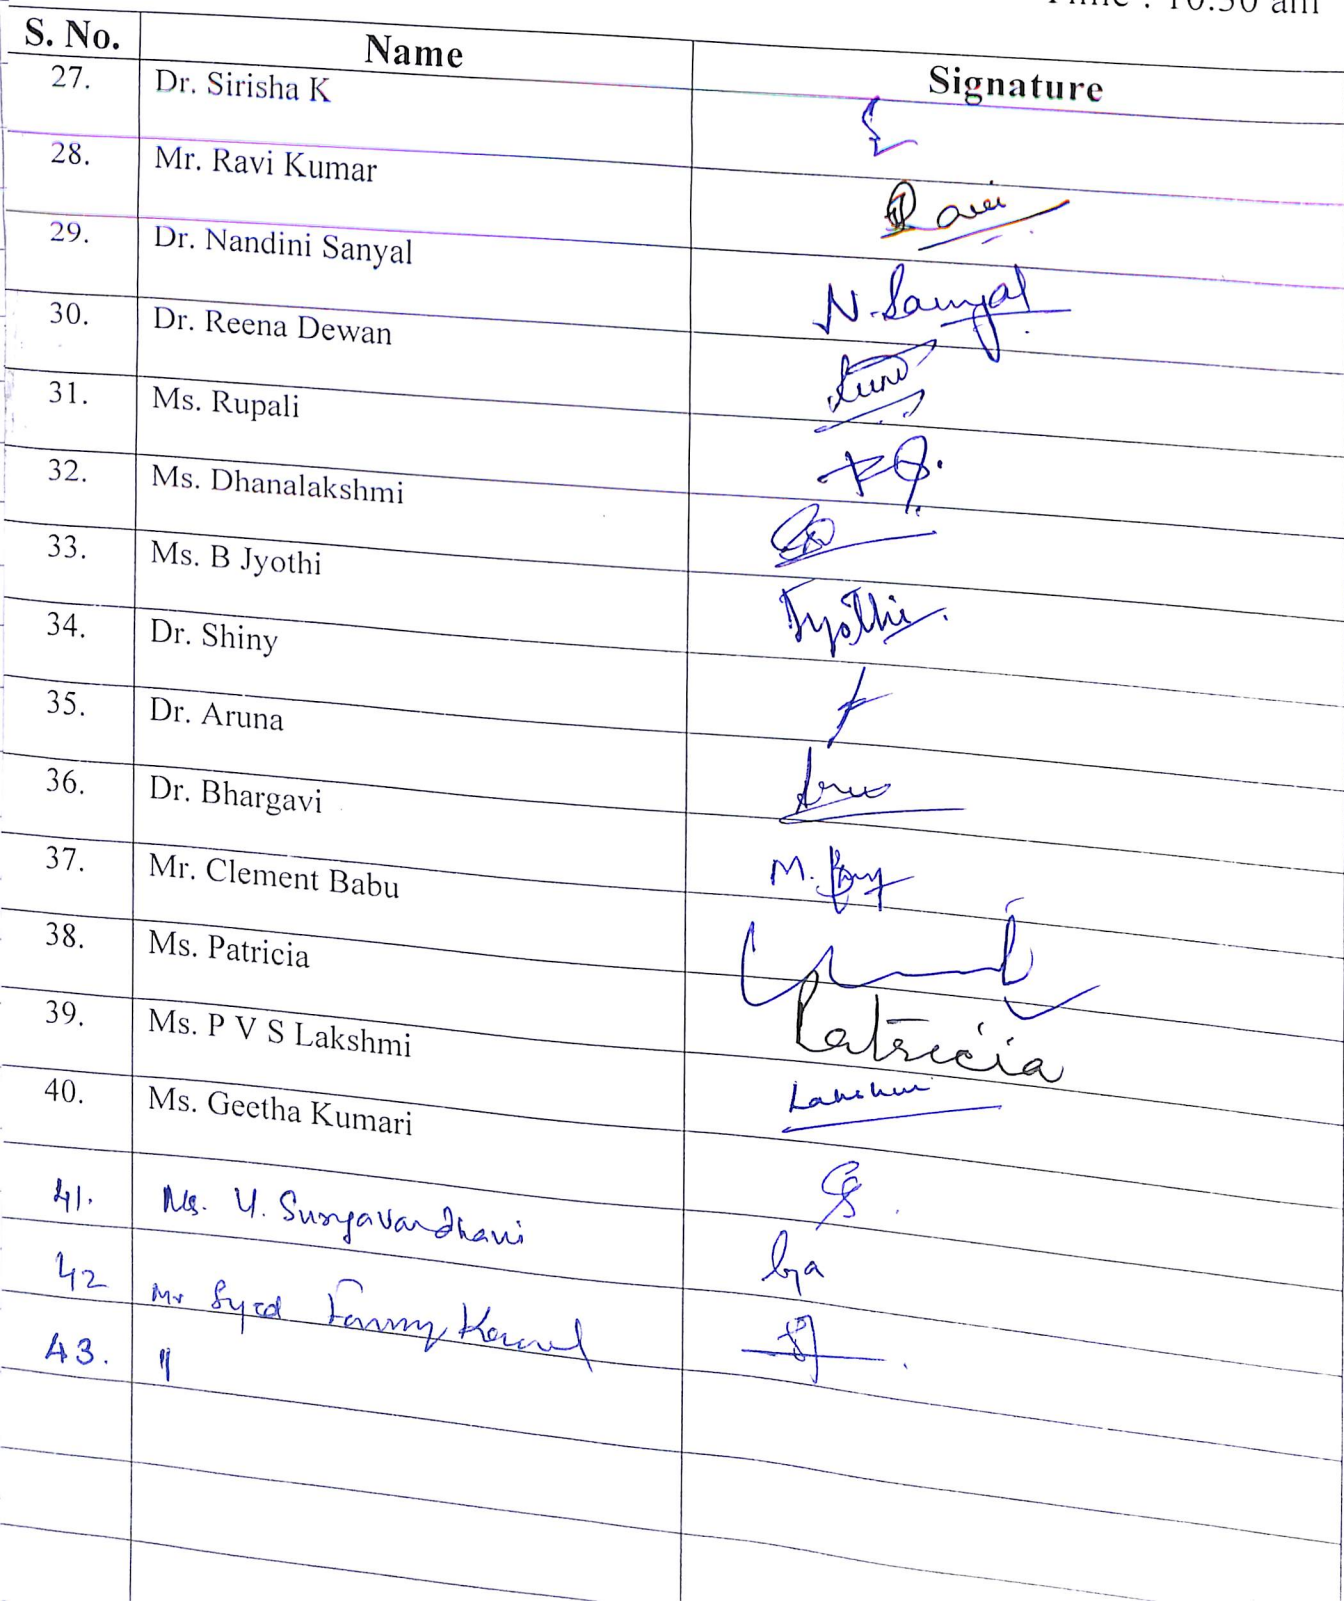 Time : 10.30 am
S. No. Name Signature
27. Dr. Sirisha K
28. Mr. Ravi Kumar Ravi
29. Dr. Nandini Sanyal N. Sanyal
30. Dr. Reena Dewan
31. Ms. Rupali
32. Ms. Dhanalakshmi
33. Ms. B Jyothi Jyothi
34. Dr. Shiny
35. Dr. Aruna
36. Dr. Bhargavi
37. Mr. Clement Babu
38. Ms. Patricia Patricia
39. Ms. P V S Lakshmi Lakshmi
40. Ms. Geetha Kumari
41. Ms. Y. Suryavardhani
42 Mr Syed
43. "